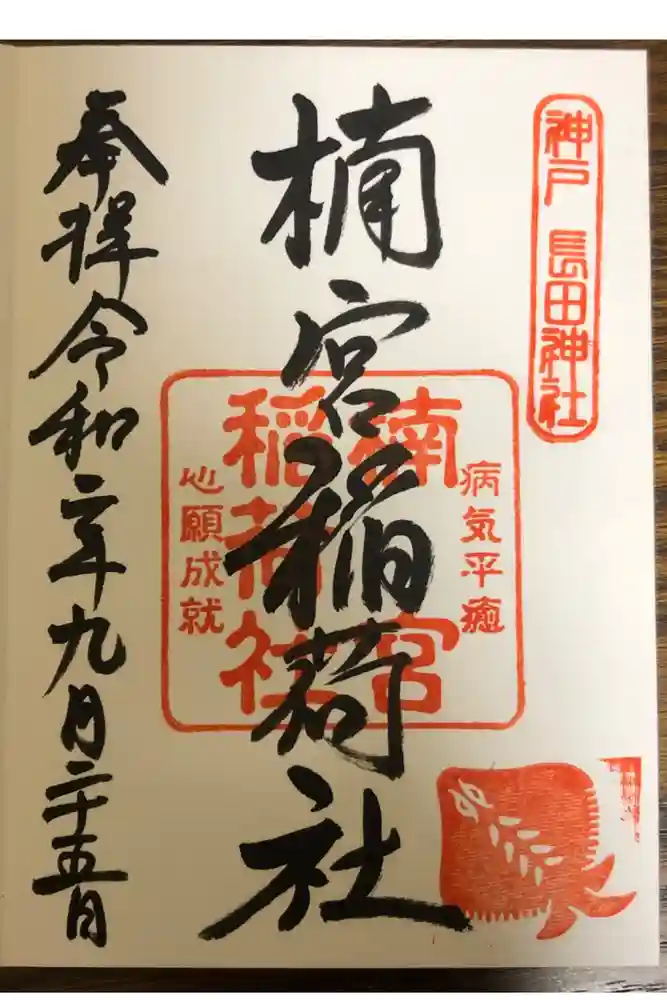 神戸 長田神社
病気平癒
楠宮稲荷社
楠宮稲荷社
心願成就
奉拝 令和二年九月二十五日